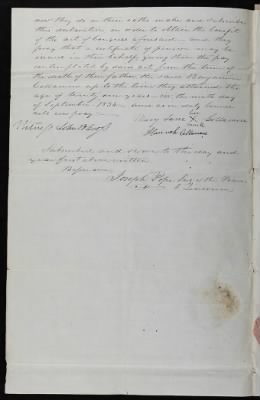 now they do on their oaths make and subscribe
this declaration in order to obtain the benefit
of the act of Congress aforesaid and they
pray that a certificate of pension may be
issued in their behalf, giving them the pay
contemplated by said act, from the time of
the death of their father the said Benjamin
Callamen up to the time they attained the
age of twenty one years on the ninth day
of September 183 and as in duty bound
will ever pray
Witness John
Mary Jane X
mark
Hannah
Subscribed and sworn to this day and
year first above written
Before me
Joseph Pope of the Peace